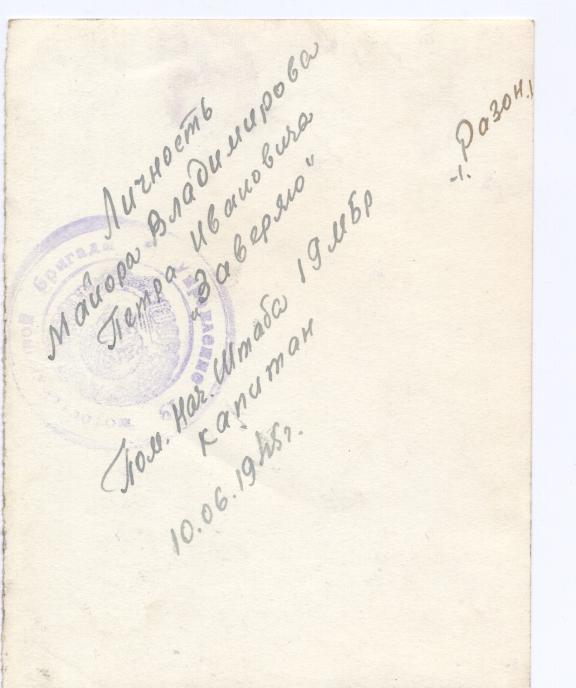 Личность
Майора Владимирова
Петра Ивановича
"Заверяю"
Пом. Нач. Штаба 19 МБр
капитан
10.06.1945г.
Разон.
бригада
Управление